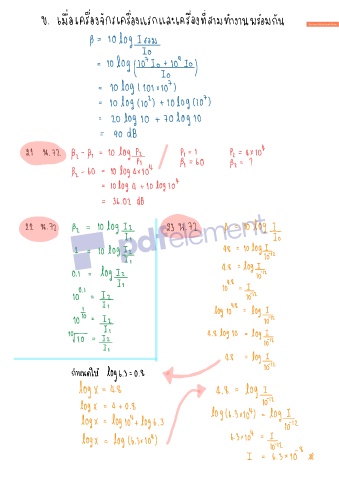 ข. เมื่อเครื่องจักรเครื่องแรกและเครื่องที่สามทำงานพร้อมกัน
β = 10 log I รวม / I₀
= 10 log (10⁹ I₀ + 10⁷ I₀ / I₀)
= 10 log (101×10⁷)
= 10 log (10²) + 10 log (10⁷)
= 20 log 10 + 70 log 10
= 90 dB
21 น.72
β₂ - β₁ = 10 log P₂/P₁
P₁ = 1
β₁ = 60
β₂ = ?
β₂ - 60 = 10 log 4×10⁴
= 10 log 4 + 10 log 10⁴
= 36.02 dB
22 น.72
β₂ = 10 log I₂/I₁
1 = 10 log I₂/I₁
0.1 = log I₂/I₁
10^0.1 = I₂/I₁
10^1/10 = I₂/I₁
¹⁰√10 = I₂/I₁
23 น.72
= 10 log I/I₀
48 = 10 log I/10⁻¹²
4.8 = log I/10⁻¹²
10^4.8 = I/10⁻¹²
log 10^4.8 = log I/10⁻¹²
4.8 log 10 = log I/10⁻¹²
4.8 = log I/10⁻¹²
pdfelement
กำหนดให้ log 6.3 = 0.8
log x = 4.8
log x = 4 + 0.8
log x = log 10⁴ + log 6.3
log x = log (6.3×10⁴)
4.8 = log I/10⁻¹²
log (6.3×10⁴) = log I/10⁻¹²
6.3×10⁴ = I/10⁻¹²
I = 6.3×10⁻⁸